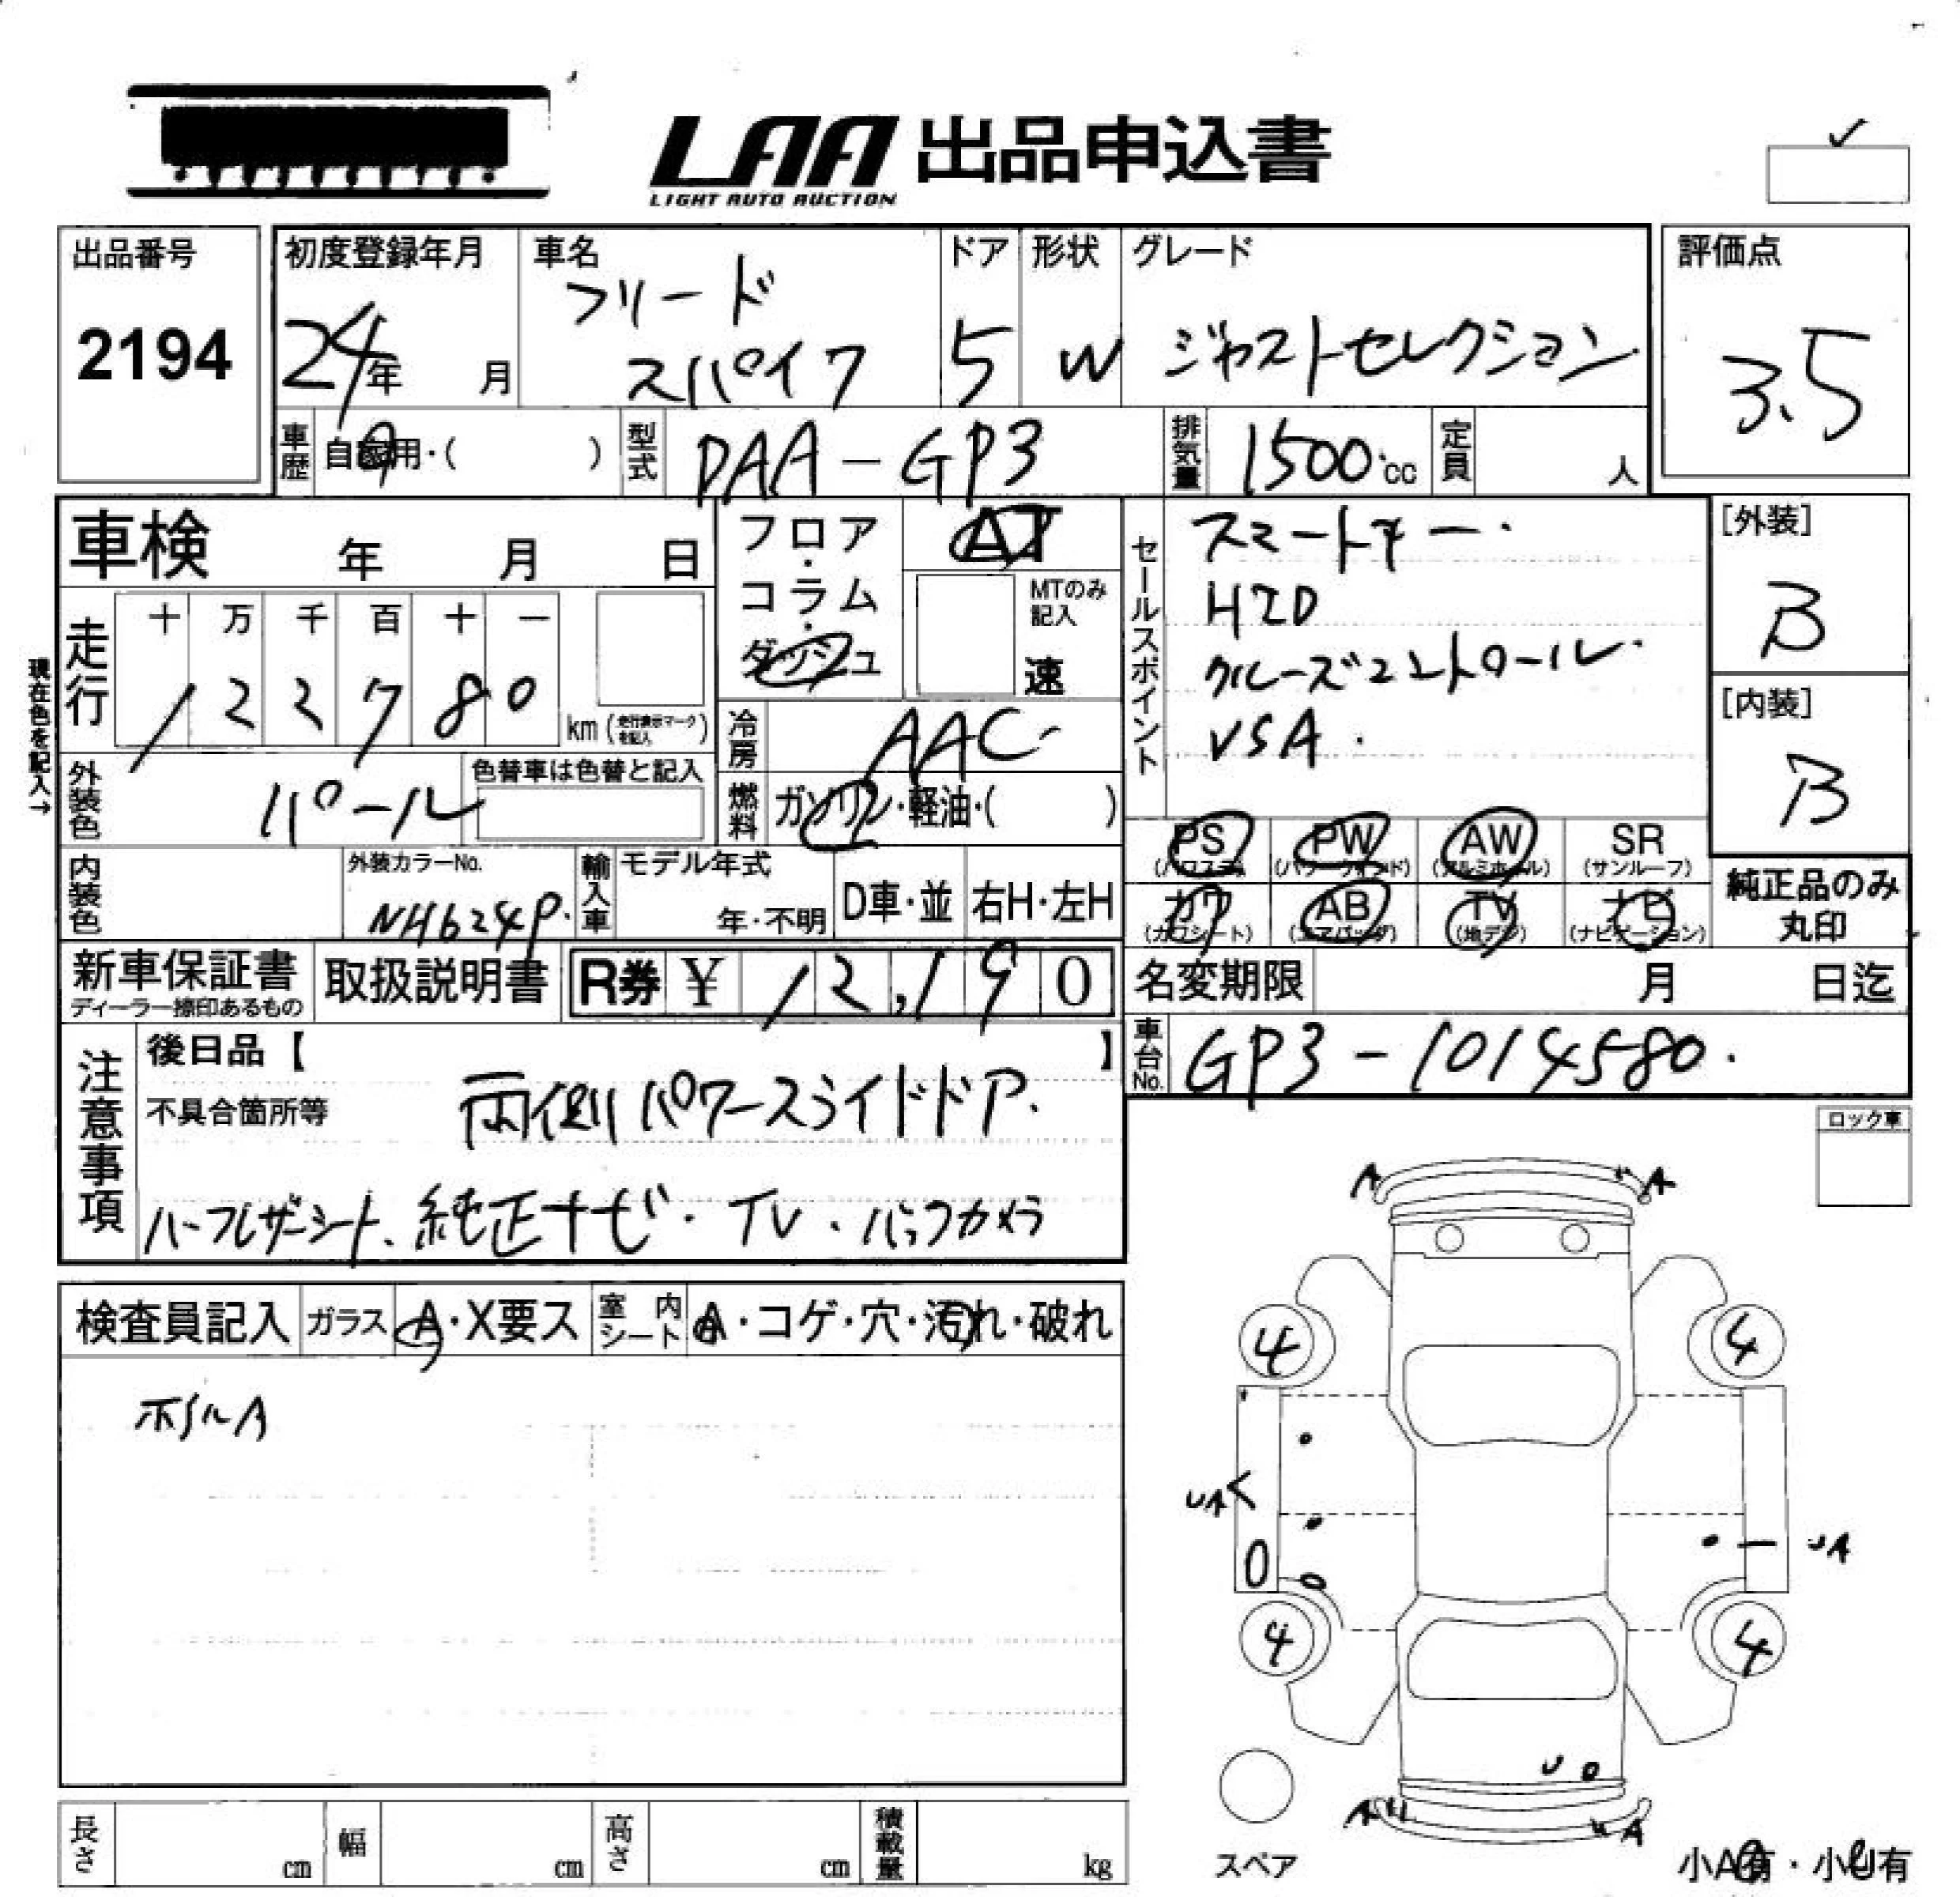 LAA 出品申込書
LIGHT AUTO AUCTION
出品番号
2194
初度登録年月
24年 月
車名
フリード
スパイク
ドア
5
形状
W
グレード
ジャストセレクション
評価点
3.5
車歴
自家用・( )
型式
DAA-GP3
排気量
1500cc
定員
人
車検 年 月 日
フロア・
コラム・
ダッシュ
AT
MTのみ
記入
速
セールスポイント
スマートキー・
HID
クルーズコントロール・
VSA.
[外装]
B
[内装]
B
現在色を記入→
走行
十 万 千 百 十 一
1 2 2 7 8 0
km (走行表示マークを記入)
冷房
AAC
外装色
パール
色替車は色替と記入
燃料
ガソリン・軽油・( )
PS
(パワステ)
PW
(パワーウインド)
AW
(アルミホイール)
SR
(サンルーフ)
カワ
(カワシート)
AB
(エアバッグ)
TV
(地デジ)
ナビ
(ナビゲーション)
純正品のみ
丸印
内装色
外装カラーNo.
NH624P.
輸入車
モデル年式
年・不明
D車・並
右H・左H
新車保証書
ディーラー捺印あるもの
取扱説明書
R券 ¥ 12,190
名変期限 月 日迄
車台No.
GP3-1014580.
注意事項
後日品【 】
不具合箇所等
両側パワースライドドア.
ハーフレザーシート、純正ナビ・TV・バックカメラ
ロック車
検査員記入
ガラス
A・X要ス
室内
シート
A・コゲ・穴・汚れ・破れ
ホイルA
A
A
4
4
UA
UA
4
4
U
A
A
スペア
小A有・小U有
長さ
cm
幅
cm
高さ
cm
積載量
kg